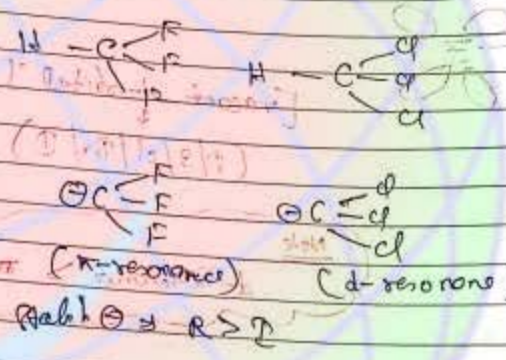 H - C - F F F
H - C - Cl Cl Cl
⊖C - F F F
⊖C - Cl Cl Cl
(π-resonance)
(d-resonone
⊖ ⇒ R > I